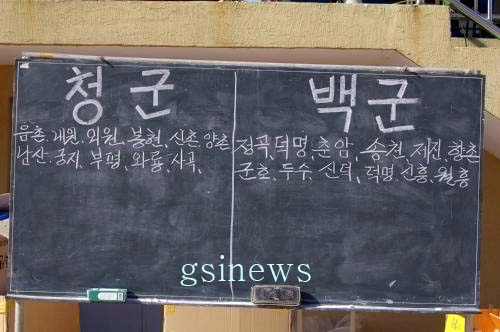 청군
음촌. 외원. 봉현. 신촌 양촌
남산. 궁지. 부평. 와룡. 사곡.
백군
덕명. 춘암. 송천. 제전. 향촌
군호. 두수. 신덕. 덕명. 신흥. 월흥
gsinews